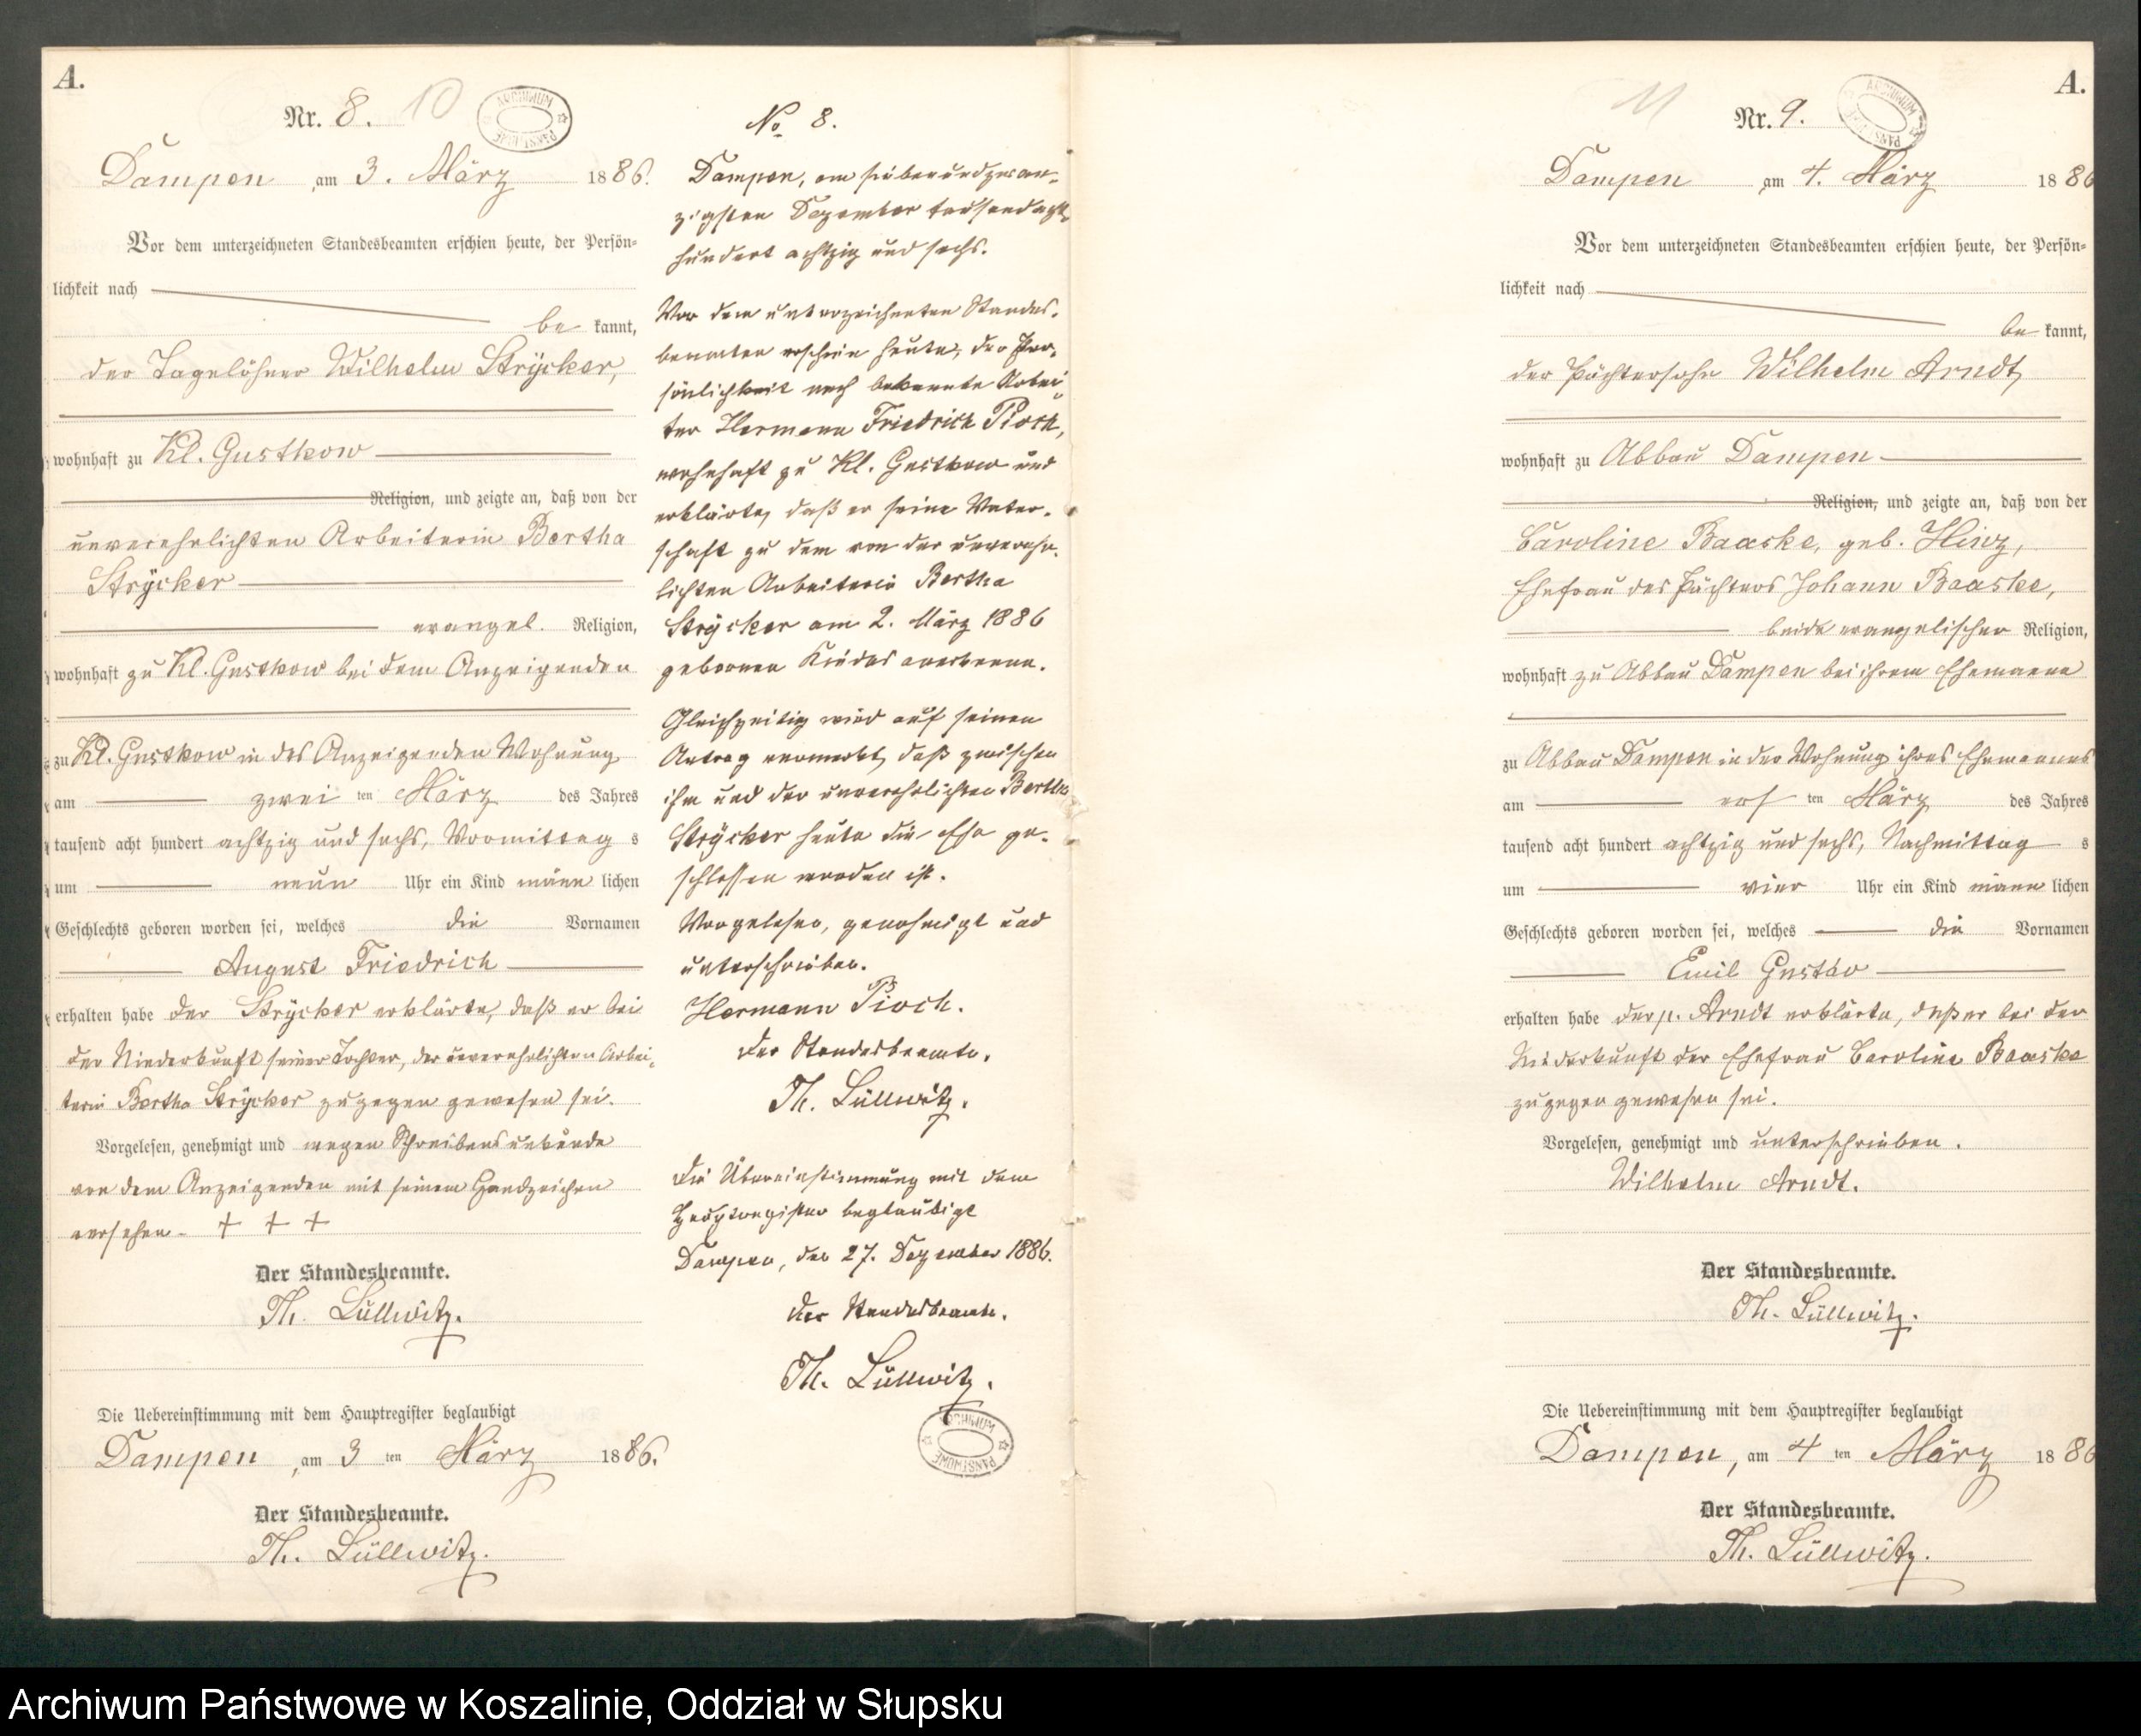 A.
Nr. 8. 10
ARCHIWUM PAŃSTWOWE
Dampen, am 3. März 1886.
Vor dem unterzeichneten Standesbeamten erschien heute, der Persön=
lichkeit nach
be kannt,
der Tagelöhner Wilhelm Strÿcker,
wohnhaft zu Kl. Gustkow
Religion, und zeigte an, daß von der
unverehelichten Arbeiterin Bertha
Strÿcker
evangel. Religion,
wohnhaft zu Kl. Gustkow bei dem Anzeigenden
zu Kl. Gustkow in des Anzeigenden Wohnung
am zwei ten März des Jahres
tausend acht hundert achtzig und sechs, Vormittag s
um neun Uhr ein Kind männ lichen
Geschlechts geboren worden sei, welches die Vornamen
August Friedrich
erhalten habe der Strÿcker erklärte, daß er bei
der Niederkunft seiner Tochter, der unverehelichten Arbei=
terin Bertha Strÿcker zugegen gewesen sei.
Vorgelesen, genehmigt und wegen Schreibensunkunde
von dem Anzeigenden mit seinem Handzeichen
versehen. + + +
Der Standesbeamte.
Th. Lüllwitz.
Die Uebereinstimmung mit dem Hauptregister beglaubigt
Dampen, am 3 ten März 1886.
Der Standesbeamte.
Th. Lüllwitz.
No 8.
Dampen, am siebenundzwan=
zigsten Dezember tausendacht=
hundert achtzig und sechs.
Vor dem unterzeichneten Standes=
beamten erschien heute, der Per=
sönlichkeit nach bekannte Arbei=
ter Hermann Friedrich Pioch,
wohnhaft zu Kl. Gustkow und
erklärte, daß er seine Vater=
schaft zu dem von der unverehe=
lichten Arbeiterin Bertha
Strÿcker am 2. März 1886
geborenen Kindes anerkenne.
Gleichzeitig wird auf seinen
Antrag vermerkt, daß zwischen
ihm und der unverehelichten Bertha
Strÿcker heute die Ehe ge=
schlossen worden ist.
Vorgelesen, genehmigt und
unterschrieben.
Hermann Pioch.
Der Standesbeamte.
Th. Lüllwitz.
Die Übereinstimmung mit dem
Hauptregister beglaubigt
Dampen, den 27. Dezember 1886.
Der Standesbeamte.
Th. Lüllwitz.
ARCHIWUM PAŃSTWOWE
A.
11 Nr. 9.
ARCHIWUM PAŃSTWOWE
Dampen am 4. März 1886
Vor dem unterzeichneten Standesbeamten erschien heute, der Persön=
lichkeit nach
be kannt,
der Pächtersohn Wilhelm Arndt,
wohnhaft zu Abbau Dampen
Religion, und zeigte an, daß von der
Caroline Baaske, geb. Hinz,
Ehefrau des Pächters Johann Baaske,
beide evangelischer Religion,
wohnhaft zu Abbau Dampen bei ihrem Ehemanne
zu Abbau Dampen in der Wohnung ihres Ehemannes
am ers ten März des Jahres
tausend acht hundert achtzig und sechs, Nachmittag s
um vier Uhr ein Kind männ lichen
Geschlechts geboren worden sei, welches die Vornamen
Emil Gustav
erhalten habe der p. Arndt erklärte, daß er bei der
Niederkunft der Ehefrau Caroline Baaske
zugegen gewesen sei.
Vorgelesen, genehmigt und unterschrieben.
Wilhelm Arndt.
Der Standesbeamte.
Th. Lüllwitz.
Die Uebereinstimmung mit dem Hauptregister beglaubigt
Dampen, am 4 ten März 1886
Der Standesbeamte.
Th. Lüllwitz.
Archiwum Państwowe w Koszalinie, Oddział w Słupsku